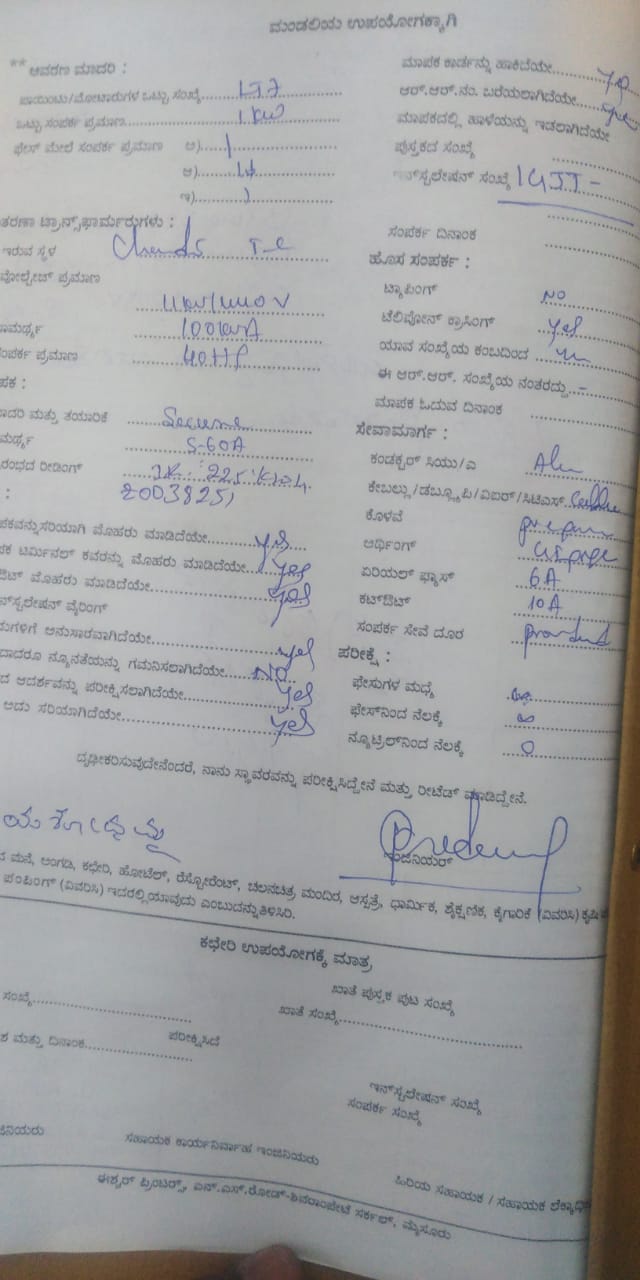 ಮಂಡಲಿಯ ಉಪಯೋಗಕ್ಕಾಗಿ
** ಆವರಣ ಮಾದರಿ :
ಪಾಯಿಂಟು/ಮೋಟಾರುಗಳ ಒಟ್ಟು ಸಂಖ್ಯೆ
ಒಟ್ಟು ಸಂಪರ್ಕ ಪ್ರಮಾಣ 1 kW
ಫೇಸ್ ಮೇಲೆ ಸಂಪರ್ಕ ಪ್ರಮಾಣ ಅ) 1
ಆ)
ಇ)
ತರಣಾ ಟ್ರಾನ್ಸ್‌ಫಾರ್ಮರುಗಳು :
ಇರುವ ಸ್ಥಳ T C
ವೋಲ್ಟೇಜ್ ಪ್ರಮಾಣ
ಾಮರ್ಥ್ಯ 100kVA
ಂಪರ್ಕ ಪ್ರಮಾಣ 40HP
ಪಕ :
ಾದರಿ ಮತ್ತು ತಯಾರಿಕೆ Secure
ಮರ್ಥ್ಯ 5-60A
ರಂಭದ ರೀಡಿಂಗ್
:
20038251
ಪಕವನ್ನು ಸರಿಯಾಗಿ ಮೊಹರು ಮಾಡಿದೆಯೇ yes
ಪಕ ಟರ್ಮಿನಲ್ ಕವರನ್ನು ಮೊಹರು ಮಾಡಿದೆಯೇ yes
ಔಟ್ ಮೊಹರು ಮಾಡಿದೆಯೇ yes
ನ್‌ಸ್ಟಲೇಷನ್ ವೈರಿಂಗ್
ಮಗಳಿಗೆ ಅನುಸಾರವಾಗಿದೆಯೇ yes
ದಾದರೂ ನ್ಯೂನತೆಯನ್ನು ಗಮನಿಸಲಾಗಿದೆಯೇ NO
ದ ಆದರ್ಶವನ್ನು ಪರೀಕ್ಷಿಸಲಾಗಿದೆಯೇ yes
ಅದು ಸರಿಯಾಗಿದೆಯೇ yes
ಮಾಪಕ ಕಾರ್ಡನ್ನು ಹಾಕಿದೆಯೇ yes
ಆರ್.ಆರ್.ನಂ. ಬರೆಯಲಾಗಿದೆಯೇ yes
ಮಾಪಕದಲ್ಲಿ ಹಾಳೆಯನ್ನು ಇಡಲಾಗಿದೆಯೇ
ಪುಸ್ತಕದ ಸಂಖ್ಯೆ
ಇನ್‌ಸ್ಟಲೇಷನ್ ಸಂಖ್ಯೆ
ಸಂಪರ್ಕ ದಿನಾಂಕ
ಹೊಸ ಸಂಪರ್ಕ :
ಟ್ಯಾಪಿಂಗ್ NO
ಟೆಲಿಫೋನ್ ಕ್ರಾಸಿಂಗ್ yes
ಯಾವ ಸಂಖ್ಯೆಯ ಕಂಬದಿಂದ
ಈ ಆರ್.ಆರ್. ಸಂಖ್ಯೆಯ ನಂತರದ್ದು -
ಮಾಪಕ ಓದುವ ದಿನಾಂಕ
ಸೇವಾಮಾರ್ಗ :
ಕಂಡಕ್ಟರ್ ಸಿಯು/ಎ Alu
ಕೇಬಲ್ಲು/ಡಬ್ಲ್ಯೂಪಿ/ಏಐಆರ್/ಸಿಟಿಎಸ್
ಕೊಳವೆ
ಅರ್ಥಿಂಗ್
ಏರಿಯಲ್ ಫ್ಯೂಸ್ 6A
ಕಟ್‌ಔಟ್ 10A
ಸಂಪರ್ಕ ಸೇವೆ ದೂರ
ಪರೀಕ್ಷೆ :
ಫೇಸುಗಳ ಮಧ್ಯೆ
ಫೇಸ್‌ನಿಂದ ನೆಲಕ್ಕೆ ∞
ನ್ಯೂಟ್ರಲ್‌ನಿಂದ ನೆಲಕ್ಕೆ 0
ದೃಢೀಕರಿಸುವುದೇನೆಂದರೆ, ನಾನು ಸ್ಥಾವರವನ್ನು ಪರೀಕ್ಷಿಸಿದ್ದೇನೆ ಮತ್ತು ರೀಟೆಡ್ ಮಾಡಿದ್ದೇನೆ.
ಇಂಜಿನಿಯರ್
ದ ಮನೆ, ಅಂಗಡಿ, ಕಛೇರಿ, ಹೋಟೆಲ್, ರೆಸ್ಟೋರೆಂಟ್, ಚಲನಚಿತ್ರ ಮಂದಿರ, ಆಸ್ಪತ್ರೆ, ಧಾರ್ಮಿಕ, ಶೈಕ್ಷಣಿಕ, ಕೈಗಾರಿಕೆ (ವಿವರಿಸಿ) ಕೃಷಿ
ಪಂಪಿಂಗ್ (ವಿವರಿಸಿ) ಇದರಲ್ಲಿ ಯಾವುದು ಎಂಬುದನ್ನು ತಿಳಿಸಿರಿ.
ಕಛೇರಿ ಉಪಯೋಗಕ್ಕೆ ಮಾತ್ರ
ಸಂಖ್ಯೆ
ಖಾತೆ ಪುಸ್ತಕ ಪುಟ ಸಂಖ್ಯೆ
ಖಾತೆ ಸಂಖ್ಯೆ
ಶ ಮತ್ತು ದಿನಾಂಕ ಪರೀಕ್ಷಿಸಿದೆ
ಇನ್‌ಸ್ಟಲೇಷನ್ ಸಂಖ್ಯೆ
ಸಂಪರ್ಕ ಸಂಖ್ಯೆ
ಜಿನಿಯರು ಸಹಾಯಕ ಕಾರ್ಯನಿರ್ವಾಹ ಇಂಜಿನಿಯರು ಹಿರಿಯ ಸಹಾಯಕ / ಸಹಾಯಕ ಲೆಕ್ಕಾಧಿ
ಈಶ್ವರ್ ಪ್ರಿಂಟರ್ಸ್, ಎನ್.ಎಸ್.ರೋಡ್-ಶಿವರಾಂಪೇಟೆ ಸರ್ಕಲ್, ಮೈಸೂರು